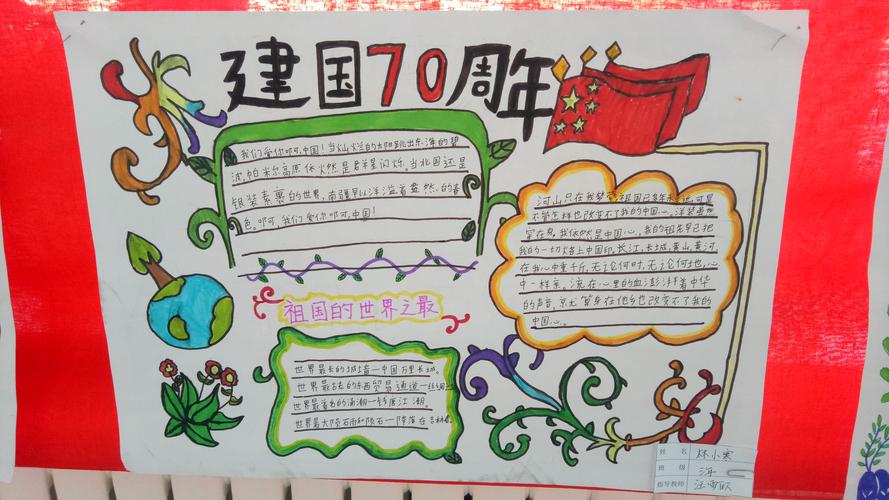 建国70周年
我们爱你啊,中国!当灿烂的太阳跳出东海的碧
波,帕米尔高原依然是群星闪烁。当北国还是
银装素裹的世界,南疆早以洋溢着盎然的春
色。啊,我们爱你啊,中国!
河山只在我梦萦祖国已多年未
不管怎样也改变不了我的中国心。洋装虽然
穿在身,我依然是中国心。我的祖先早已把
我的一切烙上中国印。长江,长城,黄山,黄河
在我心中重千斤,无论何时,无论何地,心
中一样亲。流在心里的血,澎湃着中华
的声音,就算身在他乡也改变不了我的
中国心。
祖国的世界之最
世界最长的城墙—中国万里长城。
世界最古老的东西贸易通道—丝绸之
世界最著名的涌潮—钱唐江潮。
世界最大陨石雨和陨石—降落在吉林省
姓名 林小
班级
指导教师 汪